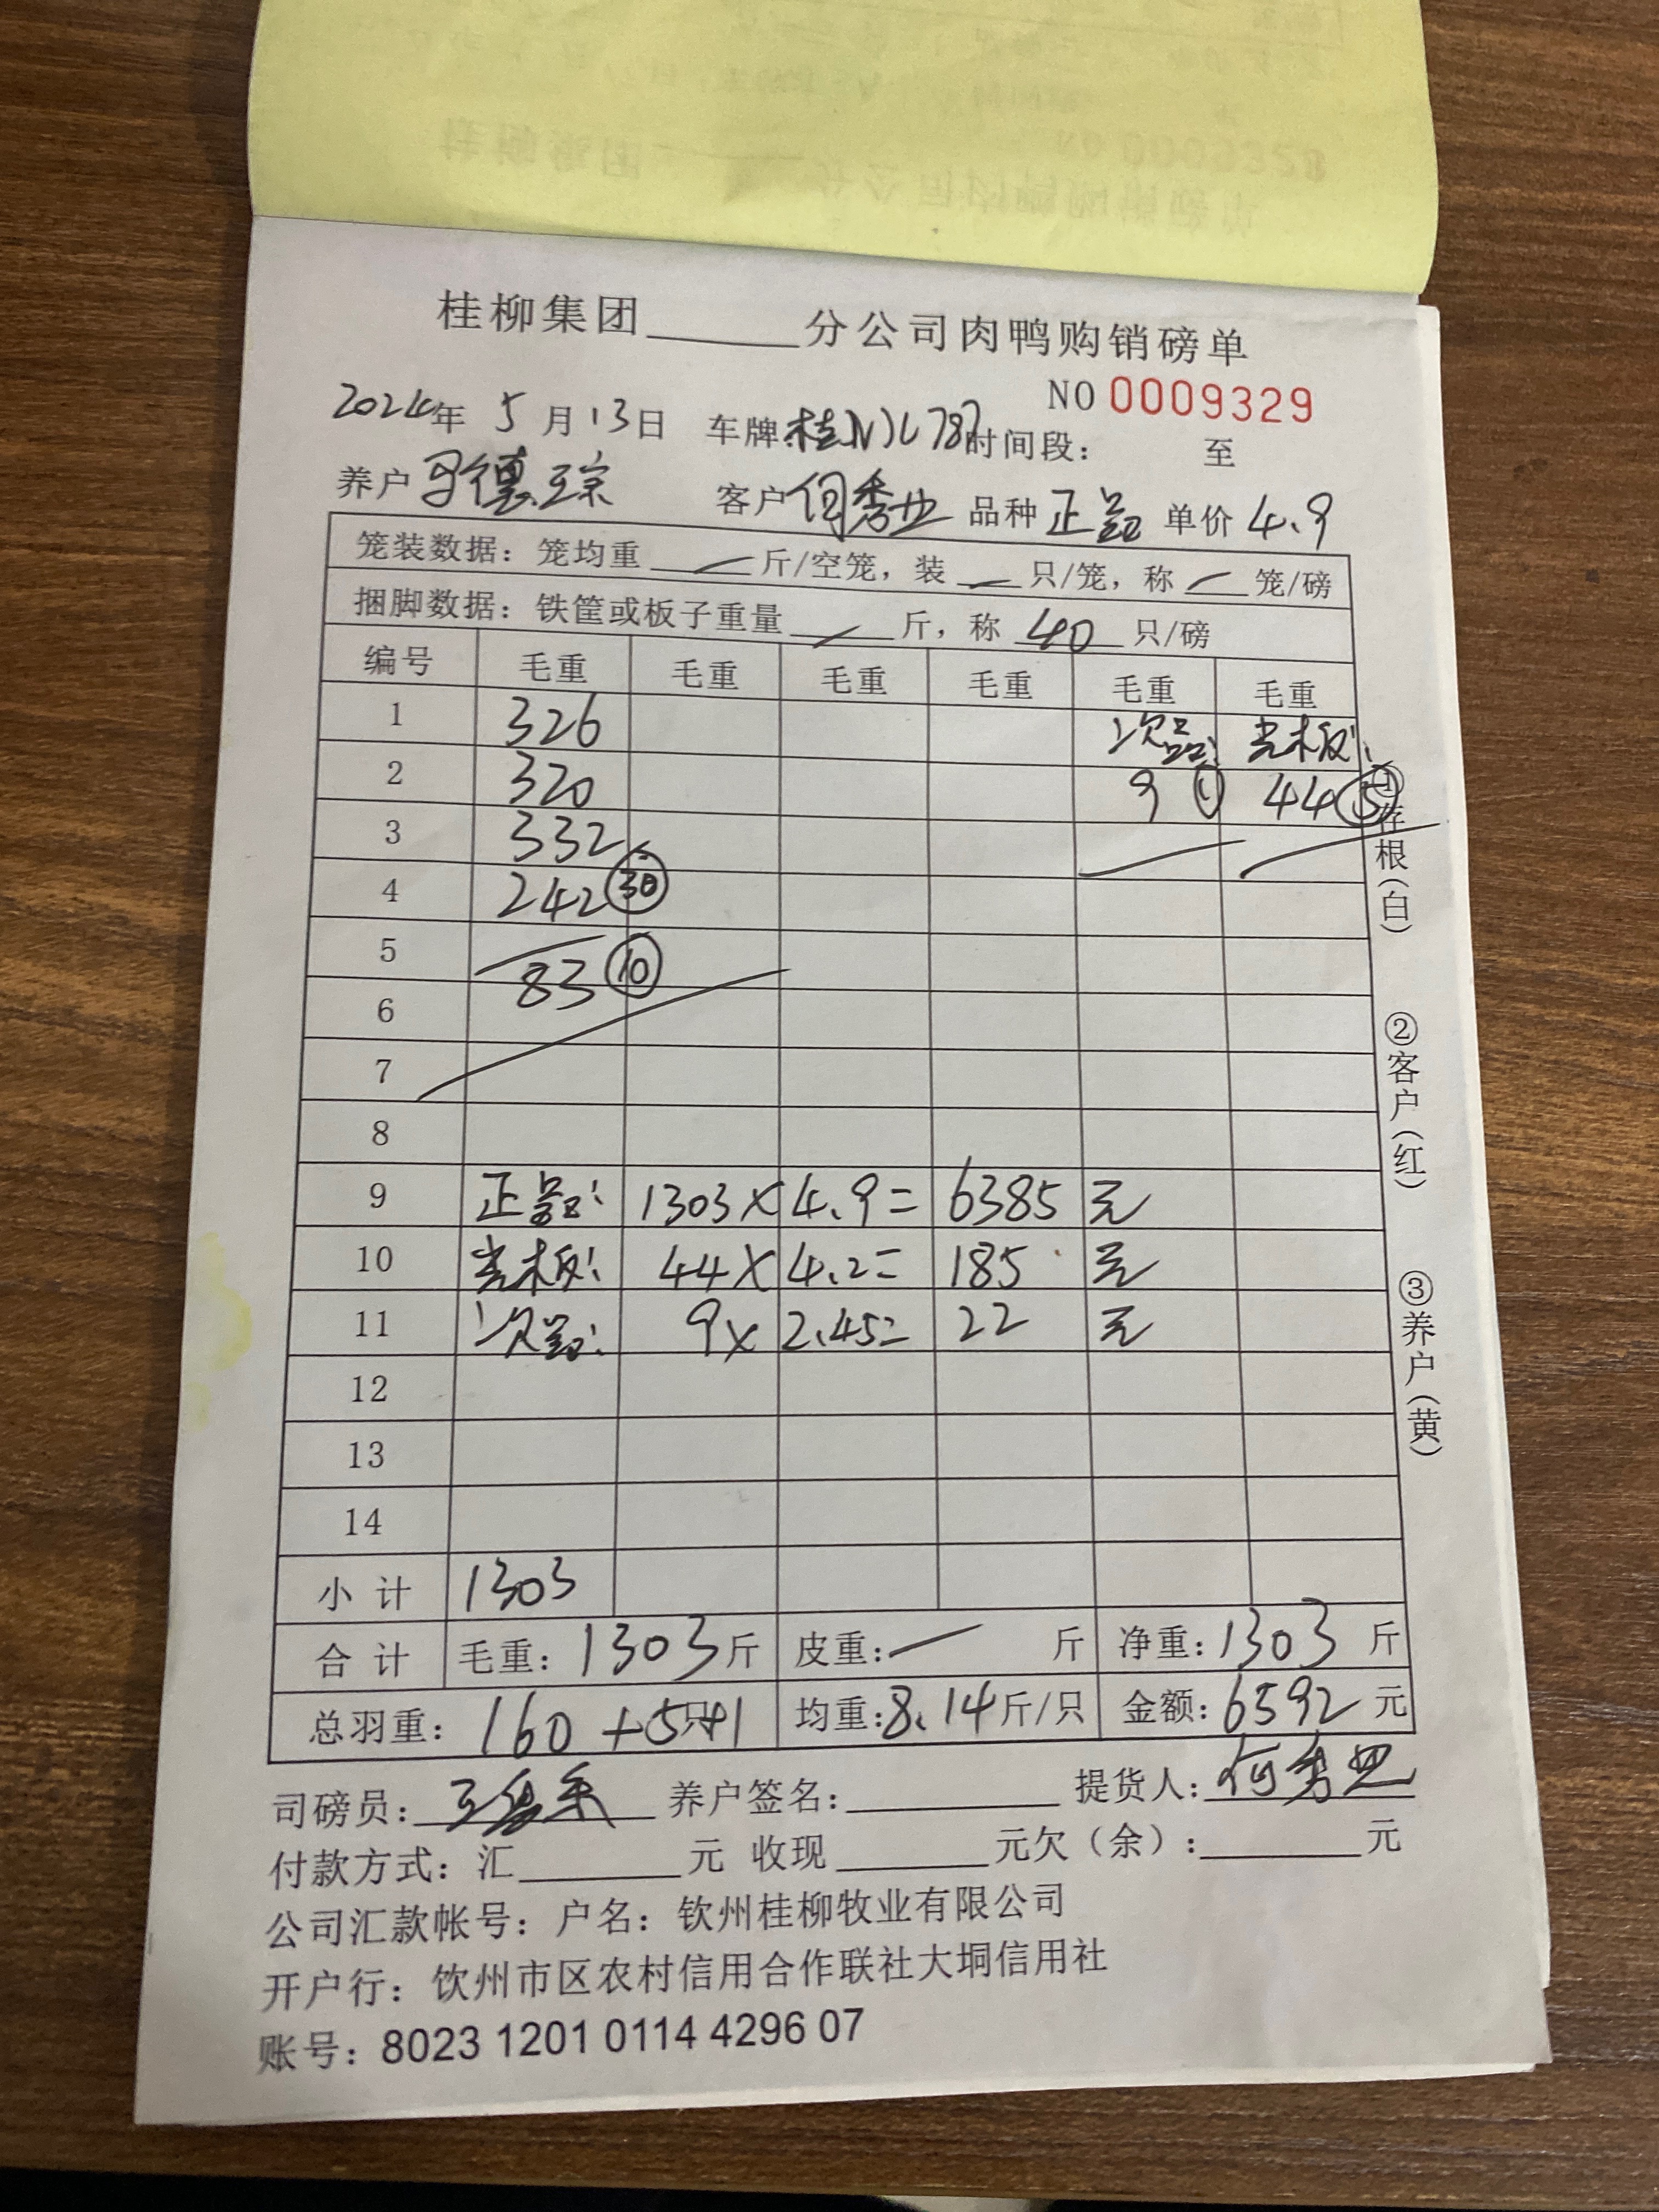 桂柳集团______分公司肉鸭购销磅单
NO 0009329
2024年 5月13日 车牌 桂N 787 时间段： 至
养户 德 客户 何秀 品种 正品 单价 4.9
笼装数据：笼均重 — 斤/空笼，装 — 只/笼，称 — 笼/磅
捆脚数据：铁筐或板子重量 — 斤，称 40 只/磅
编号 毛重 毛重 毛重 毛重 毛重 毛重
1 326 次品: 光板:
2 320 9 ① 44 ⑤
3 332
4 242 ㉚
5 83 ⑩
6
7
8
9 正品: 1303× 4.9= 6385 元
10 光板: 44× 4.2= 185 元
11 次品: 9× 2.45= 22 元
12
13
14
小计 1303
合计 毛重：1303斤 皮重：— 斤 净重：1303 斤
总羽重：160+5只+1 均重：8.14斤/只 金额：6592元
司磅员： 养户签名： 提货人：何秀
付款方式：汇______元 收现______元欠（余）：______元
公司汇款帐号：户名：钦州桂柳牧业有限公司
开户行：钦州市区农村信用合作联社大垌信用社
账号：8023 1201 0114 4296 07
①存根（白）
②客户（红）
③养户（黄）